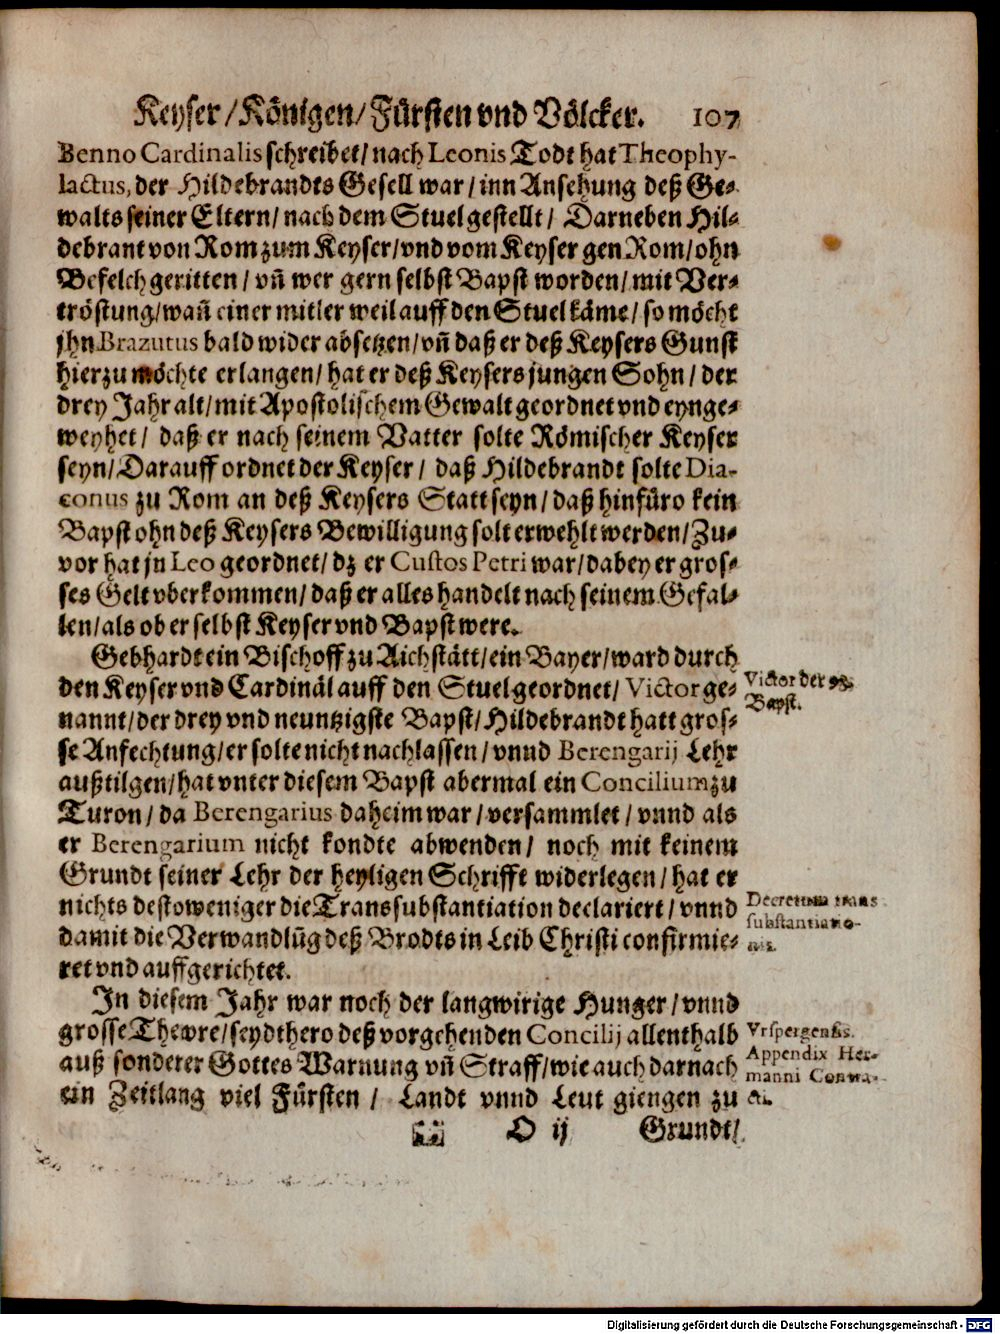 Keyser / Königen / Fürsten vnd Völcker. 107
Benno Cardinalis schreibet / nach Leonis Todt hat Theophy-
lactus, der Hildebrandts Gesell war / inn Ansehung deß Ge-
walts seiner Eltern / nach dem Stuel gestellt / Darneben Hil-
debrant von Rom zum Keyser / vnd vom Keyser gen Rom / ohn
Befelch geritten / vñ wer gern selbst Bapst worden / mit Ver-
tröstung / wañ einer mitler weil auff den Stuel käme / so möcht
jhn Brazutus bald wider absetzen / vñ daß er deß Keysers Gunst
hierzu möchte erlangen / hat er deß Keysers jungen Sohn / der
drey Jahr alt / mit Apostolischem Gewalt geordnet vnd eynge-
weyhet / daß er nach seinem Vatter solte Römischer Keyser
seyn / Darauff ordnet der Keyser / daß Hildebrandt solte Dia-
conus zu Rom an deß Keysers Statt seyn / daß hinfüro kein
Bapst ohn deß Keysers Bewilligung solt erwehlt werden / Zu-
vor hat jn Leo geordnet / dz er Custos Petri war / dabey er gros-
ses Gelt vberkommen / daß er alles handelt nach seinem Gefal-
len / als ob er selbst Keyser vnd Bapst were.
Gebhardt ein Bischoff zu Aichstätt / ein Bayer / ward durch
den Keyser vnd Cardinäl auff den Stuel geordnet / Victor ge-
nannt / der drey vnd neuntzigste Bapst / Hildebrandt hatt gros-
se Anfechtung / er solte nicht nachlassen / vnnd Berengarij Lehr
außtilgen / hat vnter diesem Bapst abermal ein Concilium zu
Turon / da Berengarius daheim war / versammlet / vnnd als
er Berengarium nicht kondte abwenden / noch mit keinem
Grundt seiner Lehr der heyligen Schrifft widerlegen / hat er
nichts destoweniger die Transsubstantiation declariert / vnnd
damit die Verwandlũg deß Brodts in Leib Christi confirmie-
ret vnd auffgerichtet.
Victor der 93.
Bapst.
Decretum trans
substantiatio-
nis.
In diesem Jahr war noch der langwirige Hunger / vnnd
grosse Thewre / seydthero deß vorgehenden Concilij allenthalb
auß sonderer Gottes Warnung vñ Straff / wie auch darnach
ein Zeitlang viel Fürsten / Landt vnnd Leut giengen zu
Vrspergensis.
Appendix Her-
manni Contra-
cti.
O ij Grundt /
Digitalisierung gefördert durch die Deutsche Forschungsgemeinschaft - DFG